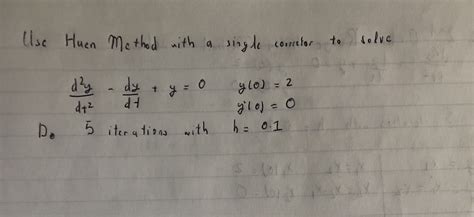 Use Huen Method with a single corrector to solve
d²y/dt² - dy/dt + y = 0 y(0) = 2
y'(0) = 0
Do 5 iterations with h = 0.1